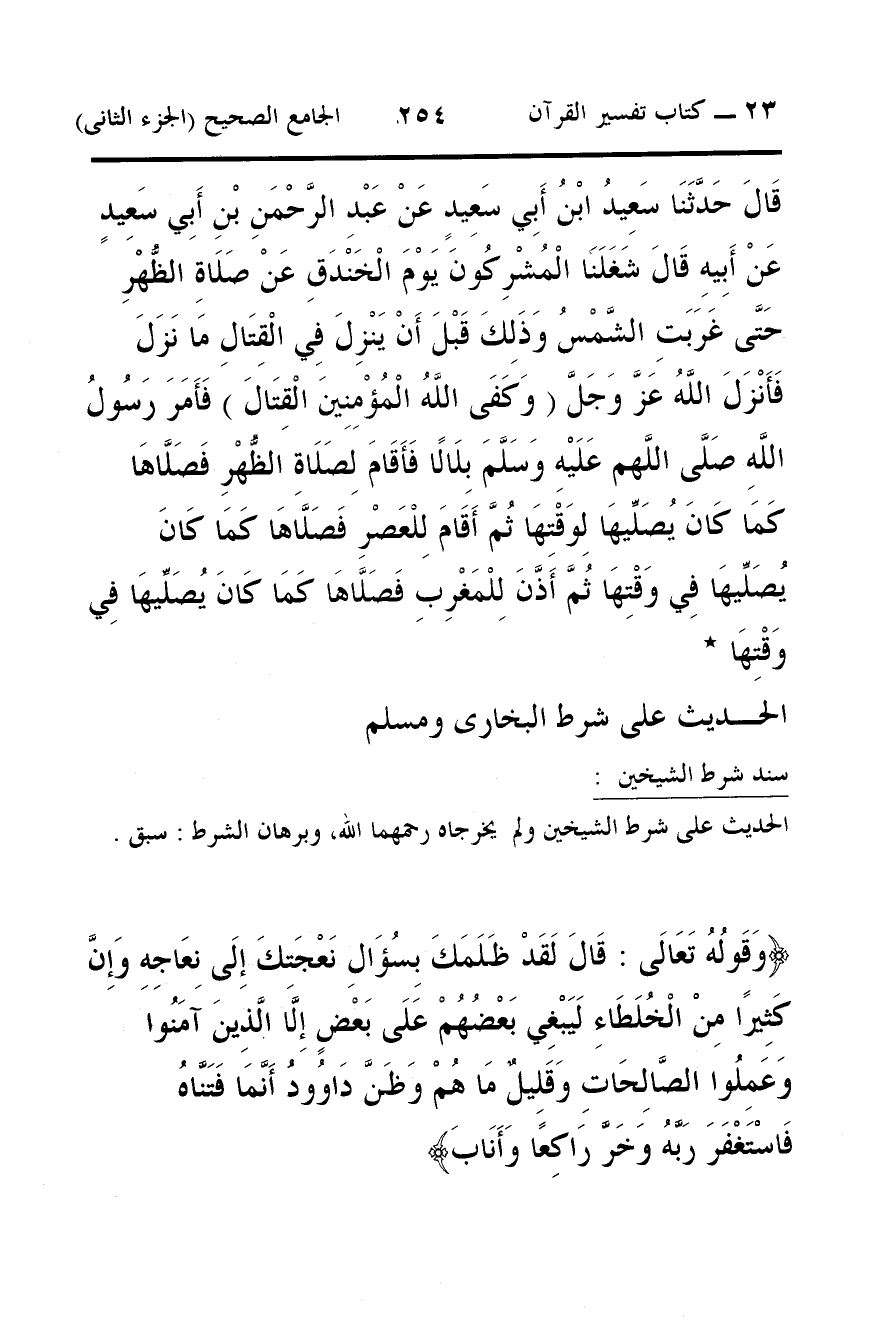 ٢٣ ــ كتاب تفسير القرآن ٢٥٤ الجامع الصحيح (الجزء الثانى)
قَالَ حَدَّثَنَا سَعِيدُ ابْنُ أَبِي سَعِيدٍ عَنْ عَبْدِ الرَّحْمَنِ بْنِ أَبِي سَعِيدٍ
عَنْ أَبِيهِ قَالَ شَغَلَنَا الْمُشْرِكُونَ يَوْمَ الْخَنْدَقِ عَنْ صَلَاةِ الظُّهْرِ
حَتَّى غَرَبَتِ الشَّمْسُ وَذَلِكَ قَبْلَ أَنْ يَنْزِلَ فِي الْقِتَالِ مَا نَزَلَ
فَأَنْزَلَ اللَّهُ عَزَّ وَجَلَّ ( وَكَفَى اللَّهُ الْمُؤْمِنِينَ الْقِتَالَ ) فَأَمَرَ رَسُولُ
اللَّهِ صَلَّى اللهم عَلَيْهِ وَسَلَّمَ بِلَالًا فَأَقَامَ لِصَلَاةِ الظُّهْرِ فَصَلَّاهَا
كَمَا كَانَ يُصَلِّيهَا لِوَقْتِهَا ثُمَّ أَقَامَ لِلْعَصْرِ فَصَلَّاهَا كَمَا كَانَ
يُصَلِّيهَا فِي وَقْتِهَا ثُمَّ أَذَّنَ لِلْمَغْرِبِ فَصَلَّاهَا كَمَا كَانَ يُصَلِّيهَا فِي
وَقْتِهَا *
الحـــديث على شرط البخارى ومسلم
سند شرط الشيخين :
الحديث على شرط الشيخين ولم يخرجاه رحمهما الله، وبرهان الشرط : سبق .
﴿وَقَوْلُهُ تَعَالَى : قَالَ لَقَدْ ظَلَمَكَ بِسُؤَالِ نَعْجَتِكَ إِلَى نِعَاجِهِ وَإِنَّ
كَثِيرًا مِنْ الْخُلَطَاءِ لَيَبْغِي بَعْضُهُمْ عَلَى بَعْضٍ إِلَّا الَّذِينَ آمَنُوا
وَعَمِلُوا الصَّالِحَاتِ وَقَلِيلٌ مَا هُمْ وَظَنَّ دَاوُودُ أَنَّمَا فَتَنَّاهُ
فَاسْتَغْفَرَ رَبَّهُ وَخَرَّ رَاكِعًا وَأَنَابَ﴾